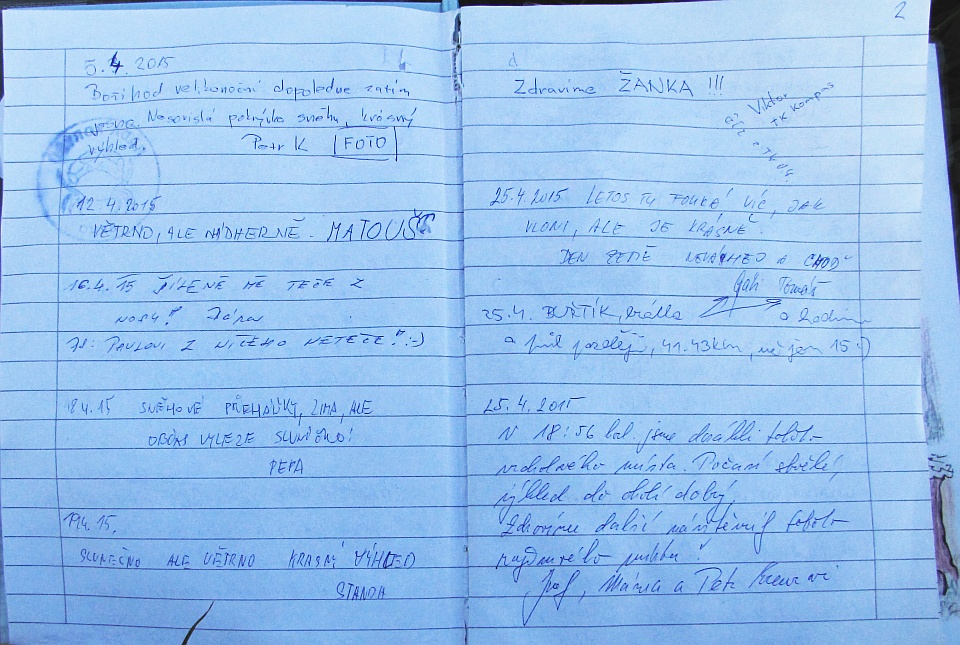 5.4. 2015
Boží hod velikonoční dopoledne zatím
Nesouvislá pokrývka sněhu, krásný
výhled. Petr K FOTO
12.4.2015
VĚTRNO, ALE NÁDHERNĚ. MATOUŠ
16.4.15 ŠÍLENĚ MĚ TEČE Z
NOSU!
PS: PAVLOVI Z NIČEHO NETEČE! :-)
18.4.15 SNĚHOVÉ PŘEHÁŇKY, ZIMA, ALE
OBČAS VYLEZE SLUNÍČKO!
PEPA
19.4.15.
SLUNEČNO ALE VĚTRNO KRASNÝ VÝHLED
STANDA
2
Zdravíme ŽANKA !!!
Viktor
TK Kompas
25.4.2015 LETOS TU FOUKÁ VÍC, JAK
VLONI, ALE JE KRÁSNĚ.
DEN ZEMĚ A CHOĎ
Tomáš
25.4. a hodinu
a půl později, 41.43km, než jen 15 :)
25.4.2015
V 18:56 hod. jsme dosáhli tohoto
vrcholného místa. Počasí skvělé,
výhled do okolí dobrý,
Zdravíme další návštěvníky tohoto
místa!
a Petr